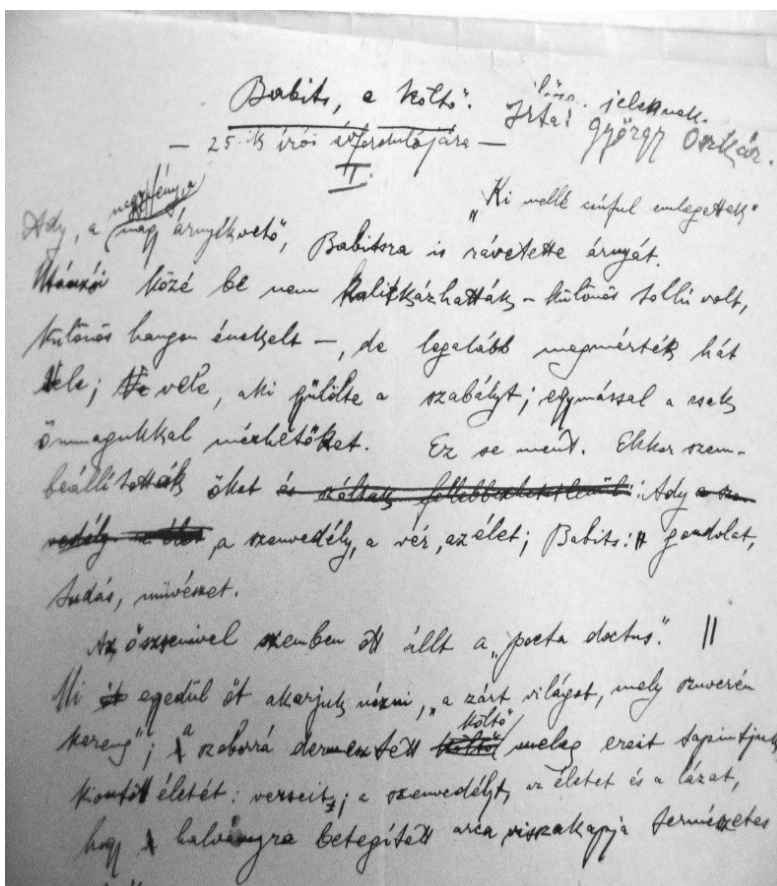 Babits, a költő.
jelennek.
Irta: György Oszkár.
— 25.-ik írói évfordulójára —
II.
"Ki mellé címful emlegettek"
Ady, a nagy árnyékvető, Babitsra is rávetette árnyát.
Utánzói közé be nem kalickázhatták – különös tollú volt,
különös hangon énekelt –, de legalább megmérték hát
vele; vele, aki gyűlölte a szabályt; egymással a csak
önmagukkal mérhetőket. Ez se ment. Ekkor szem-
beállították őket és szóltak fellebbezhetetlenül: Ady a sze-
vedély az élet, a szenvedély, a vér, az élet; Babits: gondolat,
tudás, művészet.
Az őszsenivel szemben ott állt a „poeta doctus". ||
Mi egyedül őt akarjuk nézni, „a zárt világot, mely szuverén
kereng"; a szoborrá dermesztett költő költő meleg ereit tapintjuk,
kiontott életét: verseit; a szenvedélyt, az életet és a lázat,
hogy halványra betegített arca visszakapja természetes